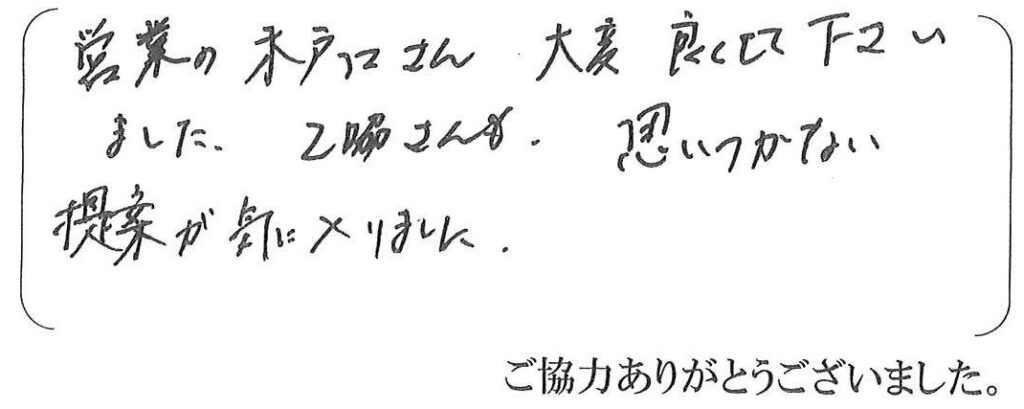 営業の木戸口さん 大変良くして下さい
ました. 乙脇さんも. 思いつかない
提案が気に入りました.
ご協力ありがとうございました。